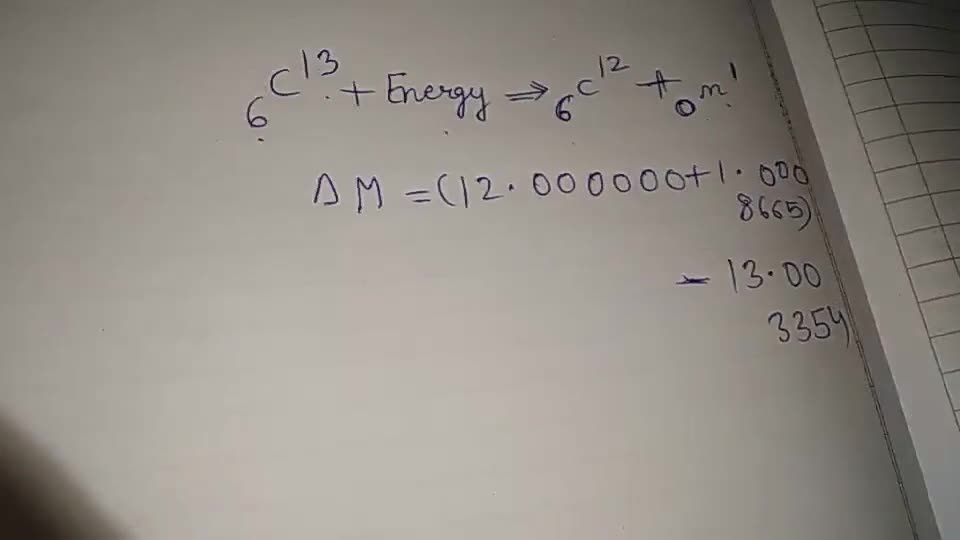 ₆C¹³ + Energy ⇒ ₆C¹² + ₀n¹
ΔM = (12.000000+1.000
8665)
- 13.00
3354)